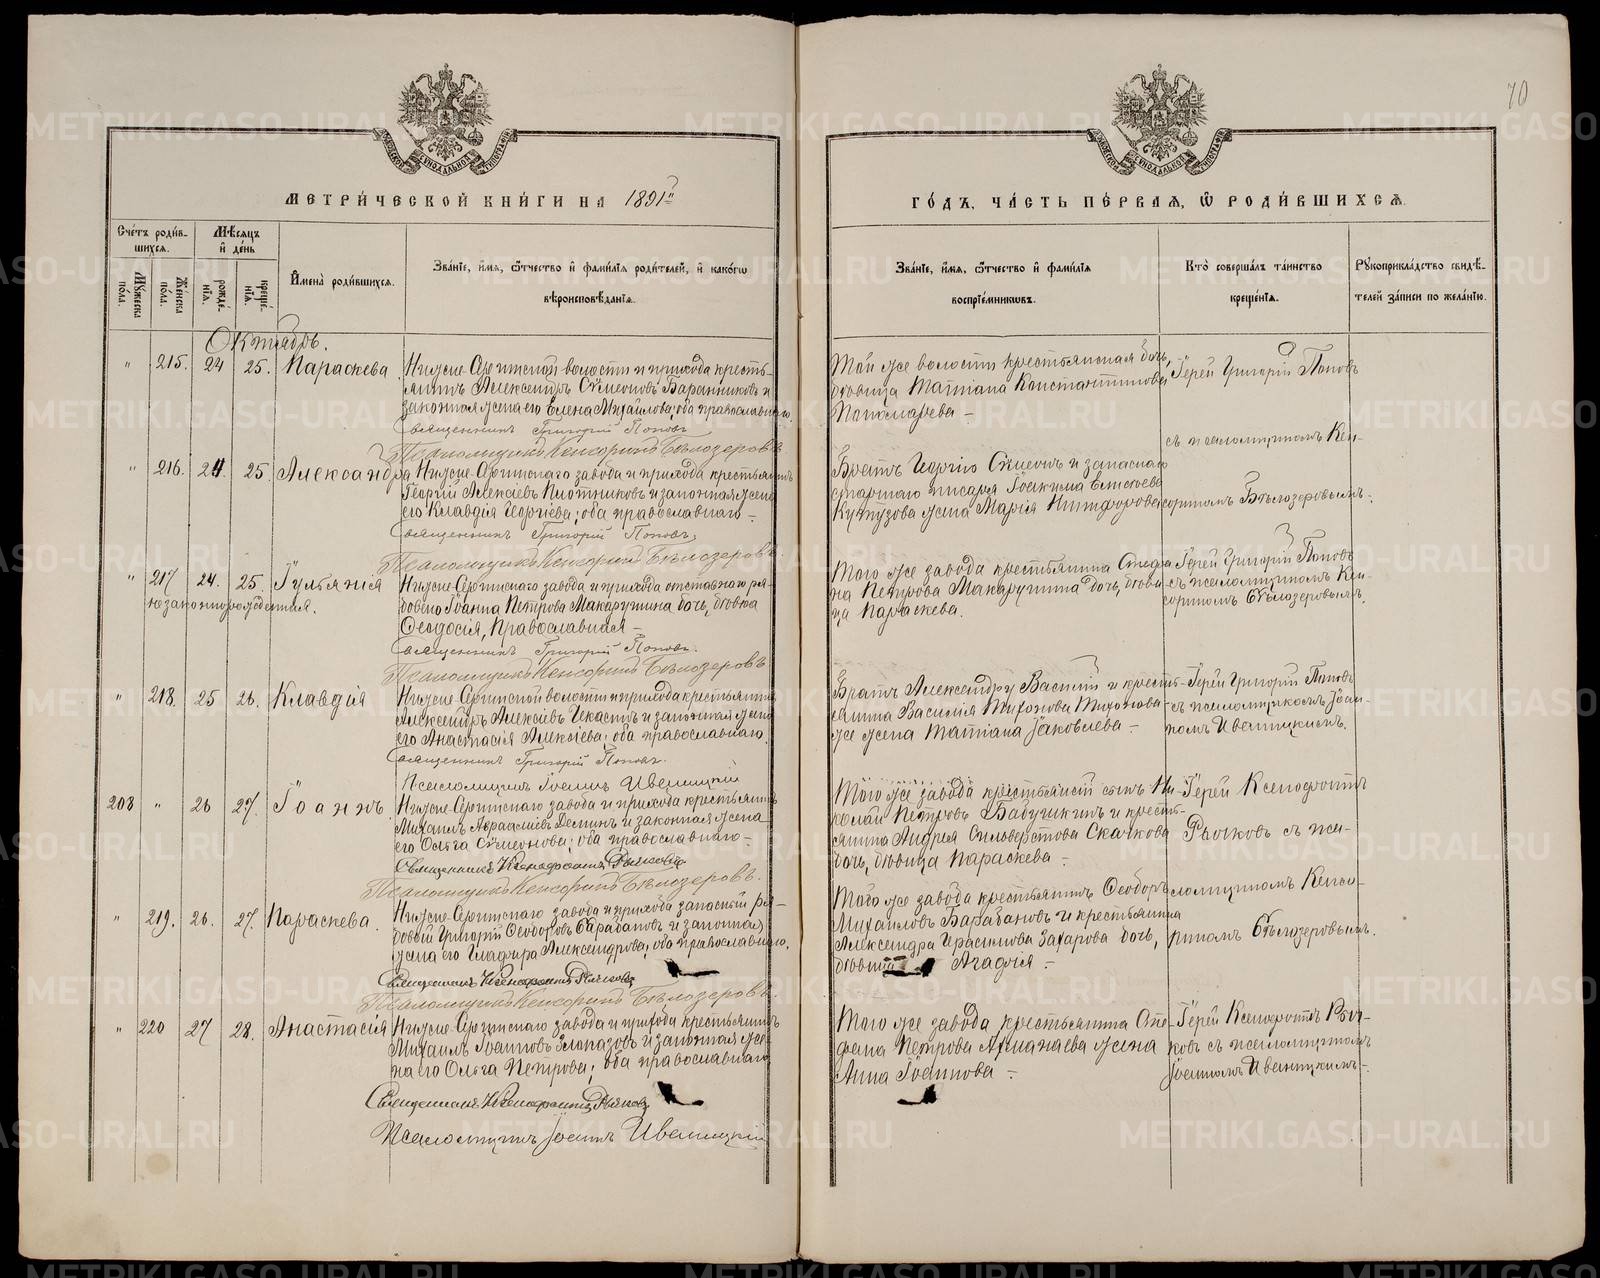 70
МЕТРИ́ЧЕСКОЙ КНИ́ГИ НА 1891й
ГО́ДЪ, ЧА́СТЬ ПЕ́РВАЯ, Ѡ РОДИ́ВШИХСЯ.
Сче́тъ роди́в-
шихся.
Мѣ́сяцъ
и де́нь
Му́жеска по́ла.
Же́нска по́ла.
рожде́-
нїя.
креще́-
нїя.
Имена̀ роди́вшихся.
Зва́нїе, и́мя, ѻ́тчество и фами́лїя роди́телей, и како́гѡ
вѣроисповѣ́данїя.
Зва́нїе, и́мя, ѻ́тчество и фами́лїя
воспрїе́мникѡвъ.
Кто̀ соверша́лъ та́инство
креще́нїя.
Рукоприкла́дство свидѣ́-
телей за́писи по жела́нїю.
Октябрь.
" 215. 24 25. Параскева
Нижне-Сергинской волости и прихода кресть-
янинъ Александръ Сѵмеоновъ Баранниковъ и
законная жена его Елена Михайлова; оба православнаго.
Священникъ Григорій Поповъ
Псаломщикъ Кенсоринъ Бѣлозеровъ
Той же волости крестьянская дочь,
дѣвица Татіана Константинова
Пономарева –
Іерей Григорій Поповъ
съ псаломщикомъ Кен-
сориномъ Бѣлозеровымъ.
" 216. 24 25 Александра
Нижне-Сергинскаго завода и прихода крестьянинъ
Георгій Алексіевъ Плотниковъ и законная жена
его Клавдія Георгіева; оба православнаго –
Священникъ Григорій Поповъ,
Псаломщикъ Кенсоринъ Бѣлозеровъ.
Братъ Георгію Сѵмеонъ и запаснаго
старшаго писаря Іоакима Елисеева
Кутузова жена Марія Никифорова
" 217 24. 25. Іуліанія
незаконнорожденная.
Нижне-Сергинскаго завода и прихода отставнаго ря-
доваго Іоанна Петрова Макарушина дочь, дѣвица
Ѳеодосія, Православная –
Священникъ Григорій Поповъ.
Псаломщикъ Кенсоринъ Бѣлозеровъ
Того же завода крестьянина Стефа-
на Петрова Макарушина дочь, дѣви-
ца Параскева.
Іерей Григорій Поповъ
съ псаломщикомъ Кен-
сориномъ Бѣлозеровымъ.
" 218. 25 26. Клавдія
Нижне-Сергинской волости и прихода крестьянинъ
Александръ Алексіевъ Чекасинъ и законная жена
его Анастасія Алексіева; оба православнаго.
Священникъ Григорій Поповъ.
Псаломщикъ Іоаннъ Ивеницкій
Братъ Александру Василій и кресть-
янина Василія Тихонова Тихонова
же жена Татіана Іаковлева –
Іерей Григорій Поповъ
съ псаломщикомъ Іоан-
номъ Ивеницкимъ.
208 " 26 27. Іоаннъ
Нижне-Сергинскаго завода и прихода крестьянинъ
Михаилъ Аѳанасіевъ Деминъ и законная жена
его Ольга Сѵмеонова; оба православнаго –
Священникъ Ксенофонтъ Рычковъ
Псаломщикъ Кенсоринъ Бѣлозеровъ.
Того же завода крестьянскій сынъ Ни-
колай Петровъ Бабушкинъ и кресть-
янина Андрея Сильверстова Скачкова
дочь, дѣвица Параскева –
Іерей Ксенофонтъ
Рычковъ съ пса-
ломщикомъ Кенсо-
риномъ Бѣлозеровымъ.
" 219. 26. 27. Параскева.
Нижне-Сергинскаго завода и прихода запасный ря-
довой Григорій Ѳеодоровъ Барабановъ и законная
жена его Глафира Александрова; оба православнаго.
Священникъ Ксенофонтъ Рычковъ
Псаломщикъ Кенсоринъ Бѣлозеровъ.
Того же завода крестьянинъ Ѳеодоръ
Михаиловъ Барабановъ и крестьянина
Александра Герасимова Захарова дочь,
дѣвица Агафія –
" 220 27 28. Анастасія
Нижне-Сергинскаго завода и прихода крестьянинъ
Михаилъ Іоанновъ Злоказовъ и законная же-
на его Ольга Петрова; оба православнаго
Священникъ Ксенофонтъ Рычковъ
Псаломщикъ Іоаннъ Ивеницкій
Того же завода крестьянина Сте-
фана Петрова жена
Анна Іоаннова –
Іерей Ксенофонтъ Рыч-
ковъ съ псаломщикомъ
Іоанномъ Ивеницкимъ –
METRIKI.GASO-URAL.RU